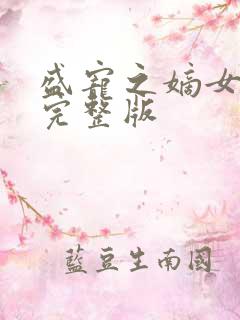 盛寵之嫡女
完整版
藍豆生南國